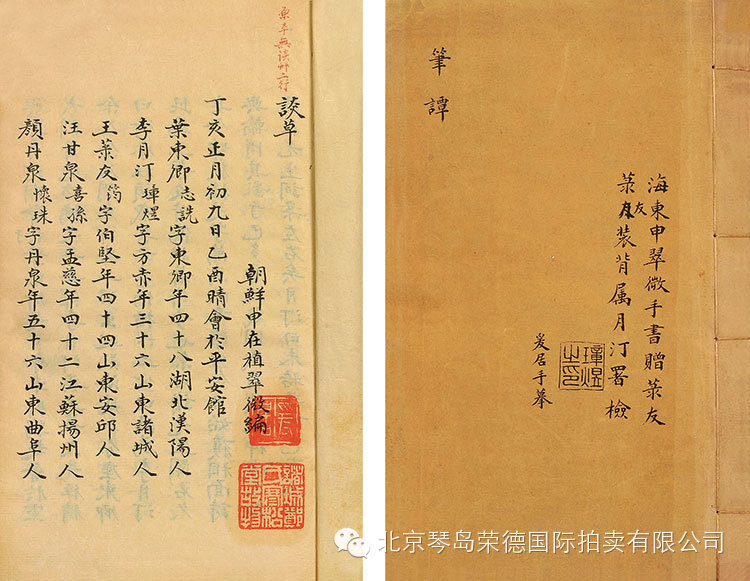 海東申翠微手書贈菉友
菉友裝背属月汀署檢
璋煜之印
爰居手摹
筆譚
原本無談草二行
談草
朝鮮申在植翠微編
丁亥正月初九日乙酉晴會於平安館
葉東卿志詵字東卿年四十八湖北漢陽人
李月汀璋煜字方赤年三十六山東諸城人
王菉友筠字伯堅年四十四山東安邱人
汪甘泉喜孫字孟慈年四十二江蘇揚州人
顏丹泉懷珠字丹泉年五十六山東曲阜人
諸城鄭
堂故物
北京琴岛荣德国际拍卖有限公司